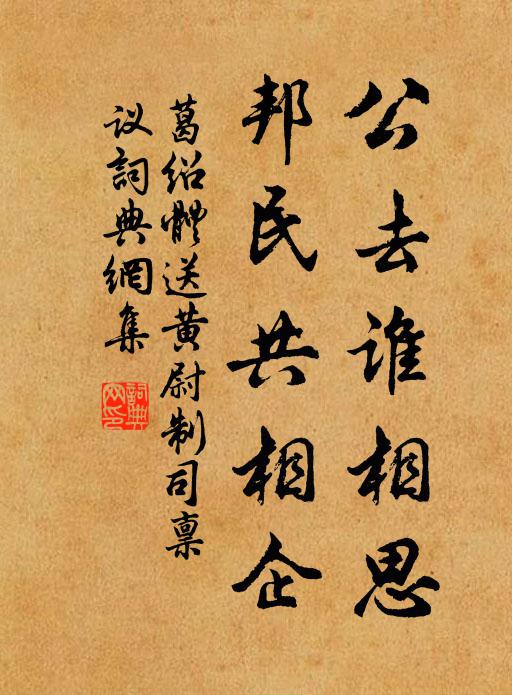 公去谁相思
邦民共相企
葛绍體送黄尉制司禀
议詞典網集
詞典
网印